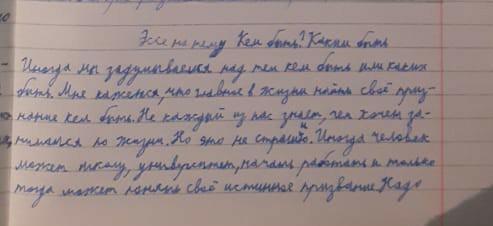 Эссе на тему Кем быть? Каким быть
Иногда мы задумываемся над тем кем быть или каких
быть. Мне кажется, что главное в жизни найти своё приз-
нание кем быть. Не каждый из нас знает, чем хочет за-
ниматься по жизни. Но это не страшно. Иногда человек
может школу, университет, начать работать и только
тогда может понять своё истинное призвание. Надо